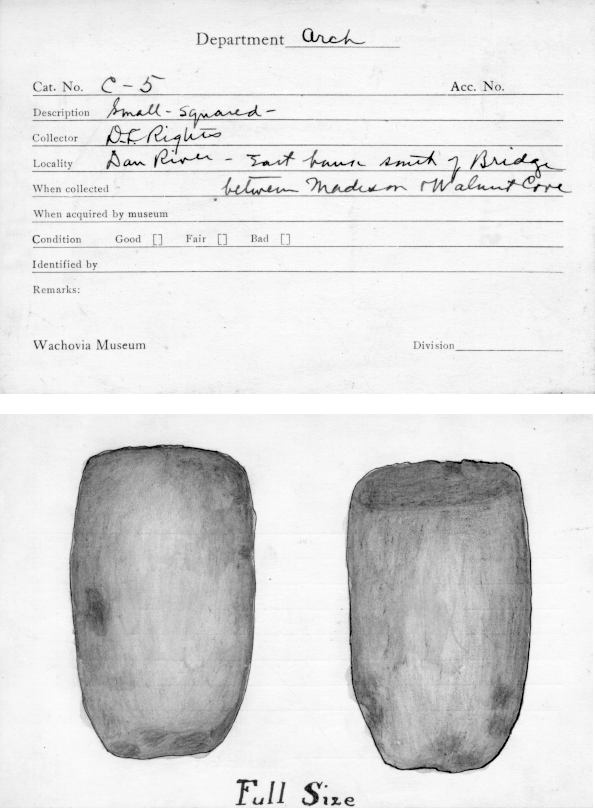 Department Arch
Cat. No. C-5 Acc. No.
Description Small-squared-
Collector D.L. Rights
Locality Dan River - East bank south of Bridge
When collected between Madison & Walnut Cove
When acquired by museum
Condition Good [] Fair [] Bad []
Identified by
Remarks:
Wachovia Museum Division
Full Size